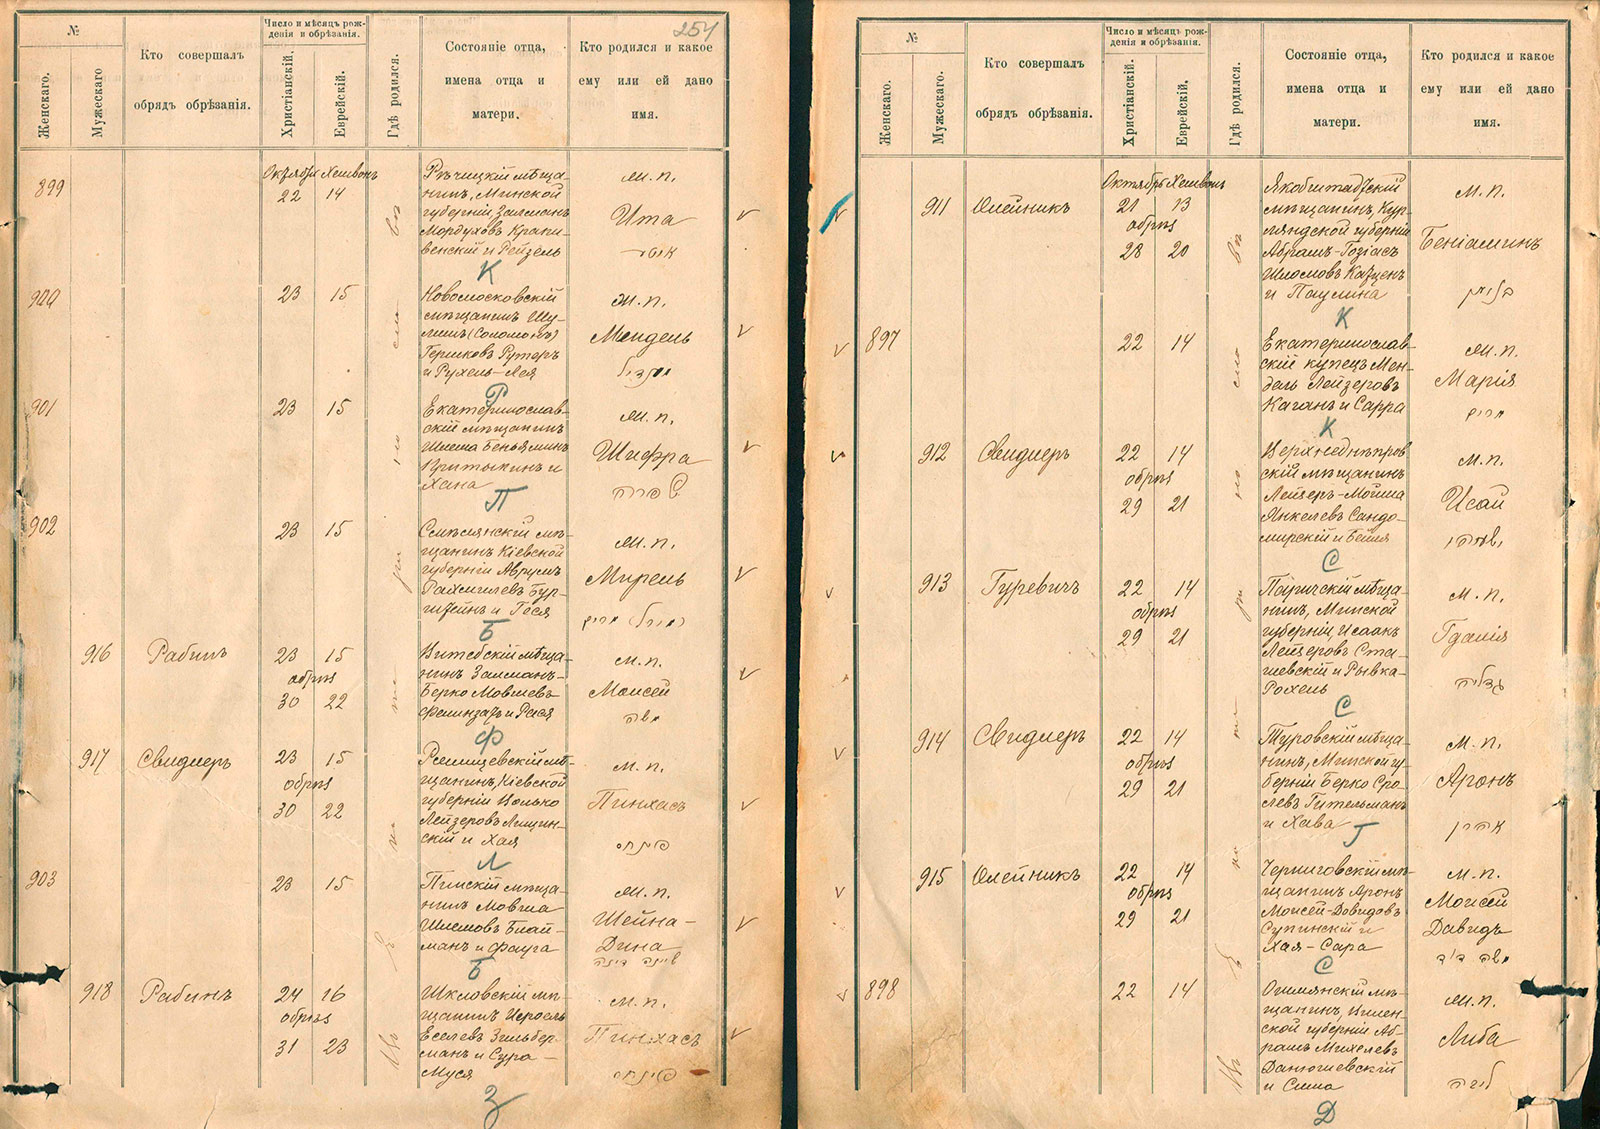 254
№
Женскаго.
Мужескаго
Кто совершалъ
обрядъ обрѣзанія.
Число и мѣсяцъ рож-
денія и обрѣзанія.
Христіанскій.
Еврейскій.
Гдѣ родился.
Состояніе отца,
имена отца и
матери.
Кто родился и какое
ему или ей дано
имя.
899
Октябрь Хешвонъ
22 14
Рѣчицкій мѣща-
нинъ, Минской
губерніи Залманъ
Мордуховъ
и Рейзель
К
м. п.
Ита
900
23 15
Новомосковскій
мѣщанинъ Шу-
лимъ (Соломонъ)
Гершковъ Рутеръ
и Рухель-Лея
Р
м. п.
Мендель
901
23 15
Екатеринослав-
скій мѣщанинъ
Шлема Беньяминъ
и
Хана
П
м. п.
Шифра
שפרה
902
23 15
мѣ-
щанинъ Кіевской
губерніи Аврумъ
Бур-
и Гося
Б
м. п.
Мирель
916 Рабинъ
23 15
обрѣз
30 22
Витебскій мѣща-
нинъ Залманъ-
Берко Мовшевъ
и Рася
Ф
м. п.
Моисей
משה
917 Свидлеръ
23 15
обрѣз
30 22
мѣ-
щанинъ, Кіевской
губерніи Волько
Лейзеровъ Лищин-
скій и Хая
Л
м. п.
Пинхасъ
פינחס
903
23 15
Пинскій мѣща-
нинъ Мовша
Шлемовъ Блай-
манъ и Фейга
Б
м. п.
Шейна-
Дина
שיינה דינה
918 Рабинъ
24 16
обрѣз
31 23
Шкловскій мѣ-
щанинъ Исроель
Еселевъ Зильбер-
манъ и Сура-
Муся
З
м. п.
Пинхасъ
פינחס
№
Женскаго.
Мужескаго.
Кто совершалъ
обрядъ обрѣзанія.
Число и мѣсяцъ рож-
денія и обрѣзанія.
Христіанскій.
Еврейскій.
Гдѣ родился.
Состояніе отца,
имена отца и
матери.
Кто родился и какое
ему или ей дано
имя.
911 Олейникъ
Октябрь Хешвонъ
21 13
обрѣз
28 20
Якобштадтскій
мѣщанинъ, Кур-
ляндской губерніи
Абрамъ-
Шломовъ Каценъ
и Паулина
К
м. п.
Беніаминъ
בנימין
897
22 14
Екатеринослав-
скій купецъ Мен-
дель Лейзеровъ
Каганъ и Сарра
К
м. п.
Марія
מרים
912 Свидлеръ
22 14
обрѣз
29 21
Верхнеднѣпров
скій мѣщанинъ
Лейзеръ-Мойша
Янкелевъ Сандо-
мирскій и Бейля
С
м. п.
Исай
ישעיהו
913 Гуревичъ
22 14
обрѣз
29 21
Паричскій мѣща-
нинъ, Минской
губерніи, Исаакъ
Лейзеровъ Ста-
шевскій и Рывка-
Рохель
С
м. п.
Гдалія
גדליה
914 Свидлеръ
22 14
обрѣз
29 21
Туровскій мѣща-
нинъ, Минской гу-
берніи Берко Сро-
левъ Гительманъ
и Хава
Г
м. п.
Аронъ
אהרן
915 Олейникъ
22 14
обрѣз
29 21
Черниговскій мѣ-
щанинъ Аронъ
Моисей-Давидовъ
Супинскій и
Хая-Сара
С
м. п.
Моисей
Давидъ
משה דוד
898
22 14
Ошмянскій мѣ-
щанинъ, Вилен-
ской губерніи Аб-
рамъ Михелевъ
Данюшевскій
и Сима
Д
м. п.
Либа
ליבה